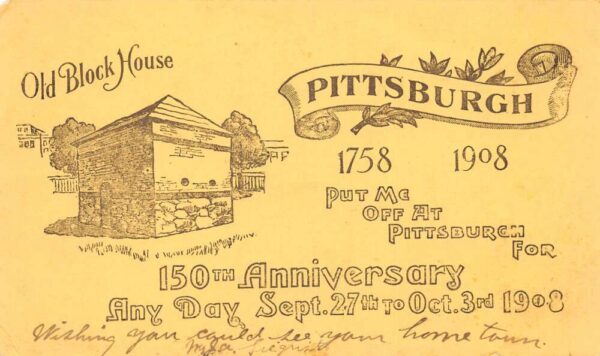 Old Block House
PITTSBURGH
1758 1908
PUT ME
OFF AT
PITTSBURGH
FOR
150TH Anniversary
Any Day Sept. 27th TO Oct. 3rd 1908
Wishing you could see your home town.